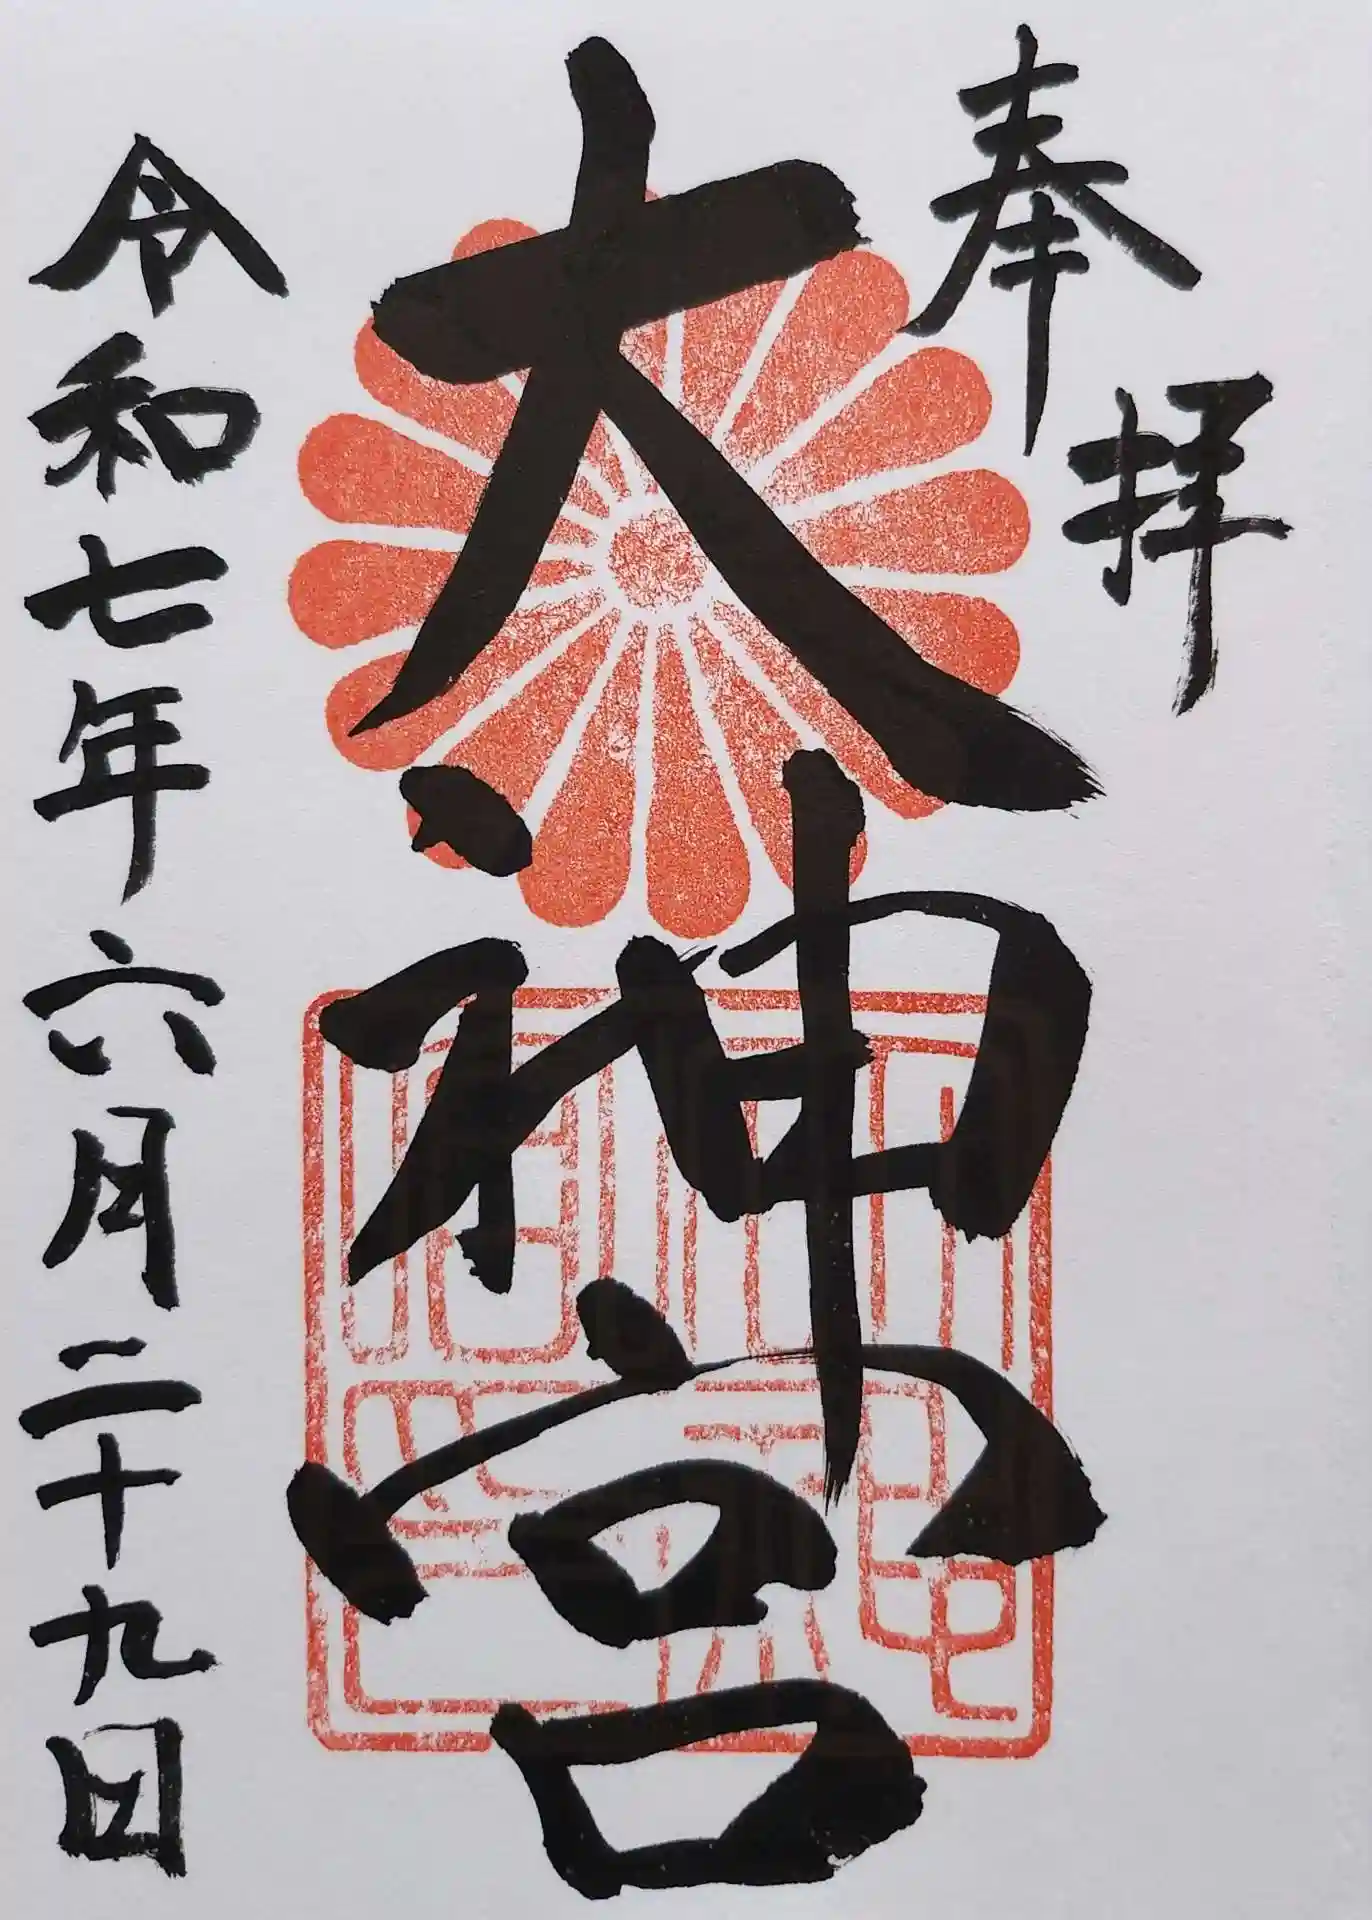 奉拝
大神宮
令和七年六月二十九日